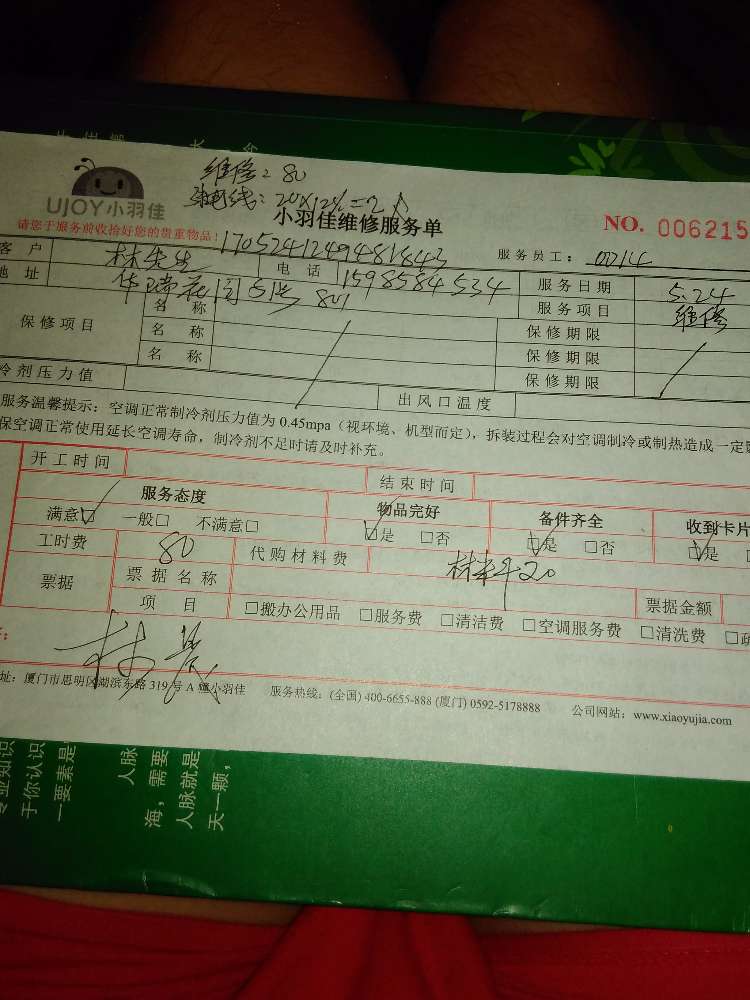 维修：80
20×12%=2
UJOY小羽佳
小羽佳维修服务单
NO. 006215
请您于服务前收拾好您的贵重物品！
1705241249481843
服务员工：00714
客 户 林先生 电 话 1598584534 服务日期 5.24
地 址 华瑞花园 51号 801 服务项目 维修
保修项目 名 称 保修期限
名 称 保修期限
名 称 保修期限
冷剂压力值 出风口温度
服务温馨提示：空调正常制冷剂压力值为 0.45mpa（视环境、机型而定），拆装过程会对空调制冷或制热造成一定
保空调正常使用延长空调寿命，制冷剂不足时请及时补充。
开工时间 结束时间
服务态度 物品完好 备件齐全 收到卡片
满意☑ 一般□ 不满意□ ☑是 □否 ☑是 □否 ☑是
工时费 80 代购材料费 20
票据 票据名称 票据金额
项 目 □搬办公用品 □服务费 □清洁费 □空调服务费 □清洗费
址：厦门市思明区湖滨东路 319 号 A 小羽佳 服务热线：(全国) 400-6655-888 (厦门) 0592-5178888 公司网站：www.xiaoyujia.com
专业知识
于你认识
一要素是
人脉
海，需要
人脉就是
天一颗，